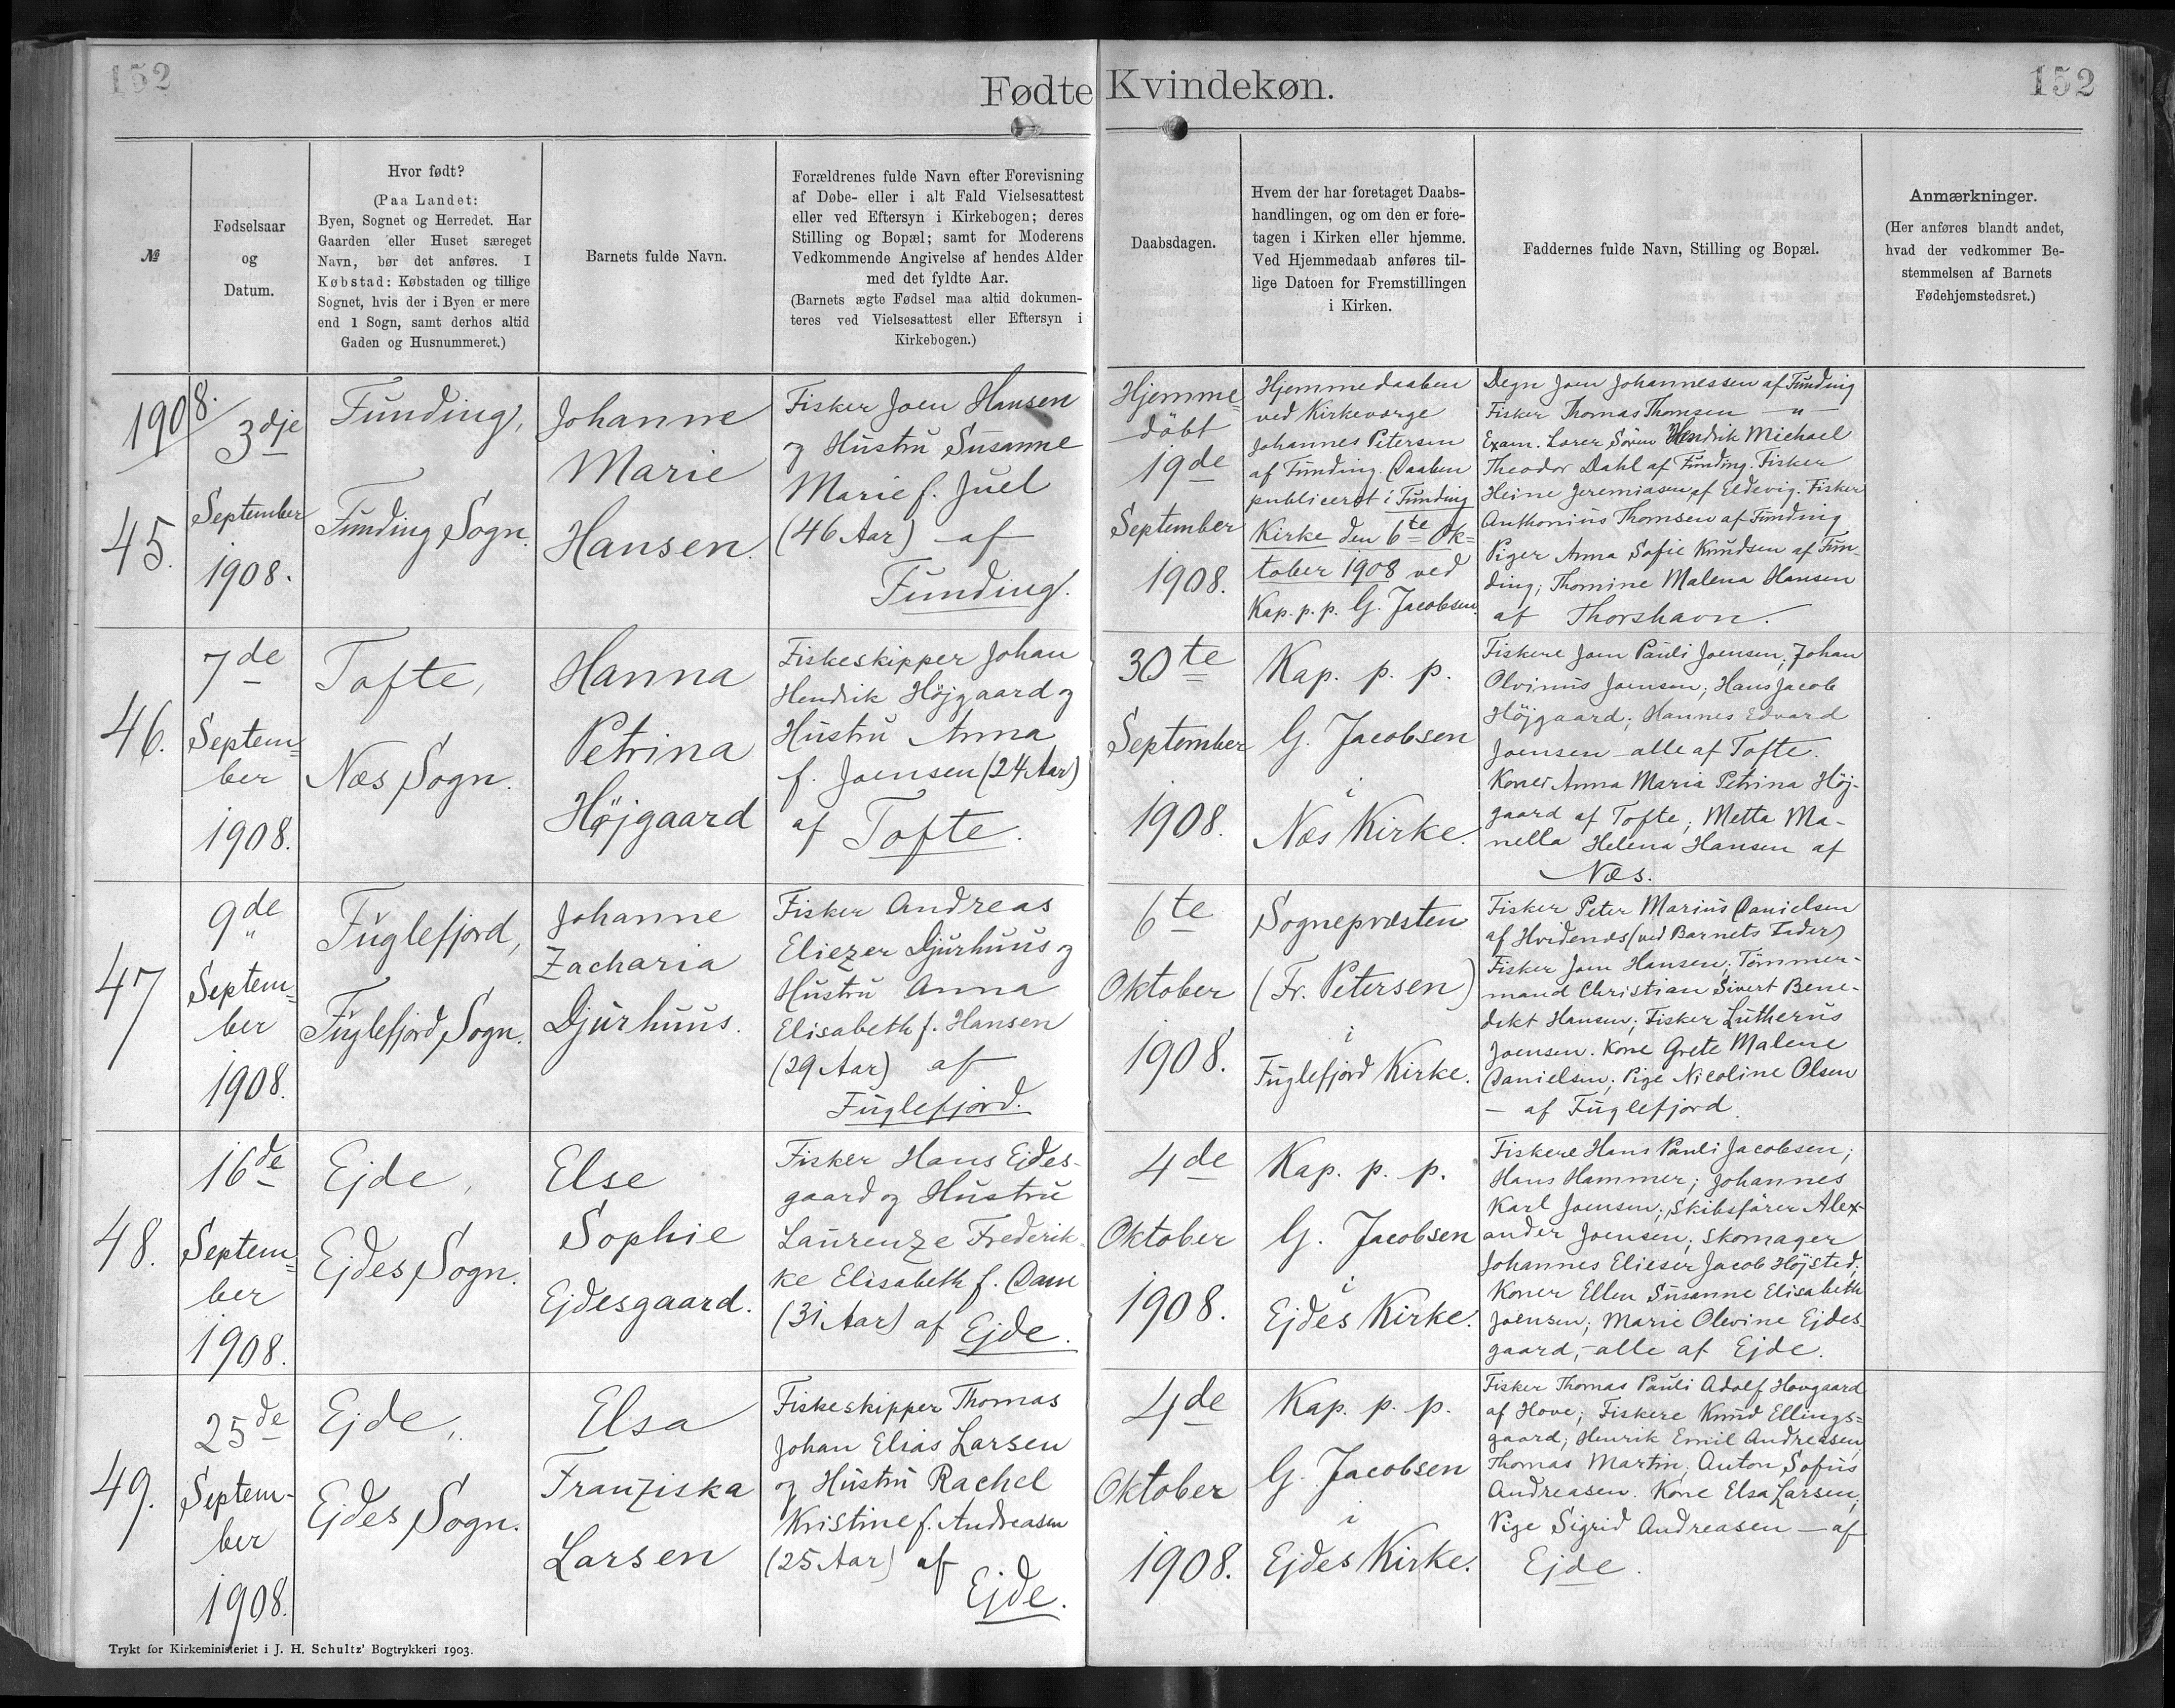 152
152
Fødte Kvindekøn.
№
Fødselsaar
og
Datum.
Hvor født?
(Paa Landet:
Byen, Sognet og Herredet. Har
Gaarden eller Huset særeget
Navn, bør det anføres. I
Købstad: Købstaden og tillige
Sognet, hvis der i Byen er mere
end 1 Sogn, samt derhos altid
Gaden og Husnummeret.)
Barnets fulde Navn.
Forældrenes fulde Navn efter Forevisning
af Døbe- eller i alt Fald Vielsesattest
eller ved Eftersyn i Kirkebogen; deres
Stilling og Bopæl; samt for Moderens
Vedkommende Angivelse af hendes Alder
med det fyldte Aar.
(Barnets ægte Fødsel maa altid dokumen-
teres ved Vielsesattest eller Eftersyn i
Kirkebogen.)
Daabsdagen.
Hvem der har foretaget Daabs-
handlingen, og om den er fore-
tagen i Kirken eller hjemme.
Ved Hjemmedaab anføres til-
lige Datoen for Fremstillingen
i Kirken.
Faddernes fulde Navn, Stilling og Bopæl.
Anmærkninger.
(Her anføres blandt andet,
hvad der vedkommer Be-
stemmelsen af Barnets
Fødehjemstedsret.)
1908.
45.
3dje
September
1908.
Funding,
Funding Sogn.
Johanne
Marie
Hansen.
Fisker Joen Hansen
og Hustru Susanne
Marie f. Juel
(46 Aar) af
Funding.
Hjemme=
døbt
19de
September
1908.
Hjemmedaaben
ved Kirkeværge
Johannes Petersen
af Funding. Daaben
publiceret i Funding
Kirke den 6te Ok=
tober 1908 ved
Kap. p. p. G. Jacobsen.
Degn Joen Johannessen af Funding
Fisker Thomas Thomsen — " —
Exam. Lærer Sören Hendrik Michael
Theodor Dahl af Funding. Fisker
Heine Jeremiasen af Eldevig. Fisker
Anthonius Thomsen af Funding
Piger Anna Sofie Knudsen af Fun-
ding; Thomine Malena Hansen
af Thorshavn.
46.
7de
Septem=
ber
1908.
Tofte,
Næs Sogn.
Hanna
Petrina
Højgaard
Fiskeskipper Johan
Hendrik Højgaard og
Hustru Anna
f. Joensen (24 Aar)
af Tofte.
30te
September
1908.
Kap. p. p.
G. Jacobsen
i
Næs Kirke.
Fiskere Joen Pauli Joensen; Johan
Olvinus Joensen; Hans Jacob
Højgaard; Hannes Edvard
Joensen — alle af Tofte.
Koner Anna Maria Petrina Höj-
gaard af Tofte; Metta Ma-
nella Helena Hansen af
Næs.
47
9de
Septem=
ber
1908.
Fuglefjord,
Fuglefjord Sogn.
Johanne
Zacharia
Djurhuus.
Fisker Andreas
Eliezer Djurhuus og
Hustru Anna
Elisabeth f. Hansen
(29 Aar) af
Fuglefjord.
6te
Oktober
1908.
Sognepræsten
(Fr. Petersen)
i
Fuglefjord Kirke.
Fisker Peter Marius Danielsen
af Hvidenæs (ved Barnets Fader)
Fisker Joen Hansen; Tömmer-
mand Christian Sivert Bene-
dikt Hansen; Fisker Lutherus
Joensen. Kone Grete Malene
Danielsen; Pige Nicoline Olsen
— af Fuglefjord.
48.
16de
Septem=
ber
1908.
Ejde,
Ejdes Sogn.
Else
Sophie
Ejdesgaard.
Fisker Hans Ejdes-
gaard og Hustru
Laurenze Frederik-
ke Elisabeth f. Dam
(31 Aar) af Ejde.
4de
Oktober
1908.
Kap. p. p.
G. Jacobsen
i
Ejdes Kirke.
Fiskere Hans Pauli Jacobsen;
Hans Hammer; Johannes
Karl Joensen; Skibsfører Alex-
ander Joensen; Skomager
Johannes Elieser Jacob Höjsted;
Koner Ellen Susanne Elisabeth
Joensen; Marie Olevine Ejdes-
gaard, — alle af Ejde.
49.
25de
Septem-
ber
1908.
Ejde,
Ejdes Sogn.
Elsa
Franziska
Larsen
Fiskeskipper Thomas
Johan Elias Larsen
og Hustru Rachel
Kristine f. Andreasen
(25 Aar) af
Ejde.
4de
Oktober
1908.
Kap. p. p.
G. Jacobsen
i
Ejdes Kirke.
Fisker Thomas Pauli Adolf Hovgaard
af Hove; Fiskere Knud Ellings=
gaard; Henrik Emil Andreasen;
Thomas Martin; Anton Sofus
Andreasen. Kone Elsa Larsen;
Pige Sigrid Andreasen — af
Ejde.
Trykt for Kirkeministeriet i J. H. Schultz' Bogtrykkeri 1903.